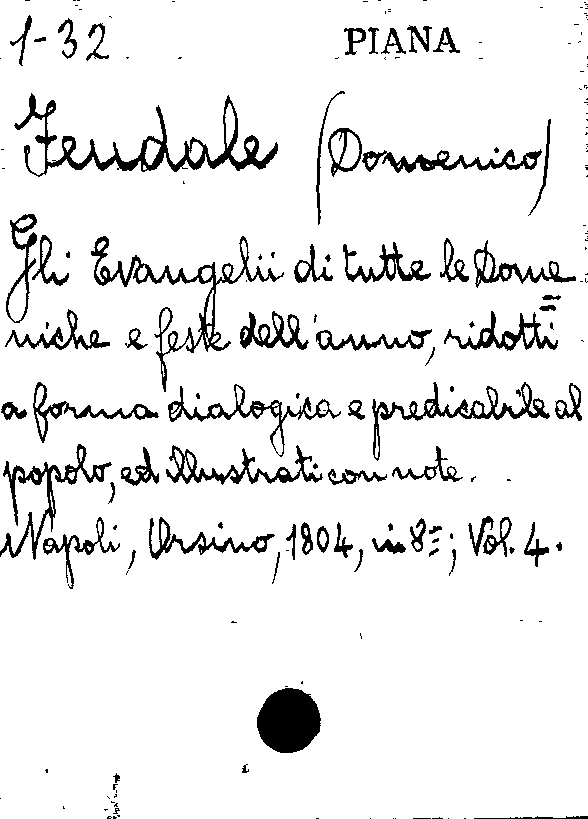 1-32 PIANA
Feudale (Domenico)
Gli Evangelii di tutte le Dome=
niche e feste dell'anno, ridotti
a forma dialogica e predicabile al
popolo, ed illustrati con note.
Napoli, Orsino, 1804, in 8=; Vol. 4.